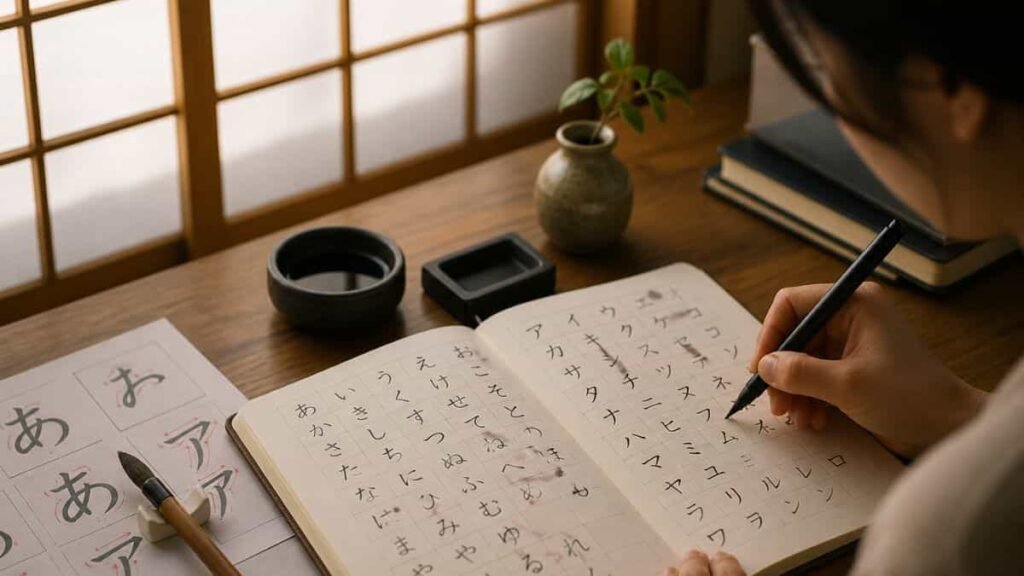 あ お
あ ア
ア ア
あ い う え お
か き く け こ
さ し す せ そ
た ち つ て と
な に ぬ ね
は ひ ふ へ
ま み む め も
や ゆ
る れ
ア イ ウ
カ キ ク ケ コ
サ ス ソ
タ チ ツ
ナ ニ ヌ ネ
ハ ヒ フ
マ ミ ム ネ
ヤ ユ
ラ リ ル レ ロ
ワ ヲ ン